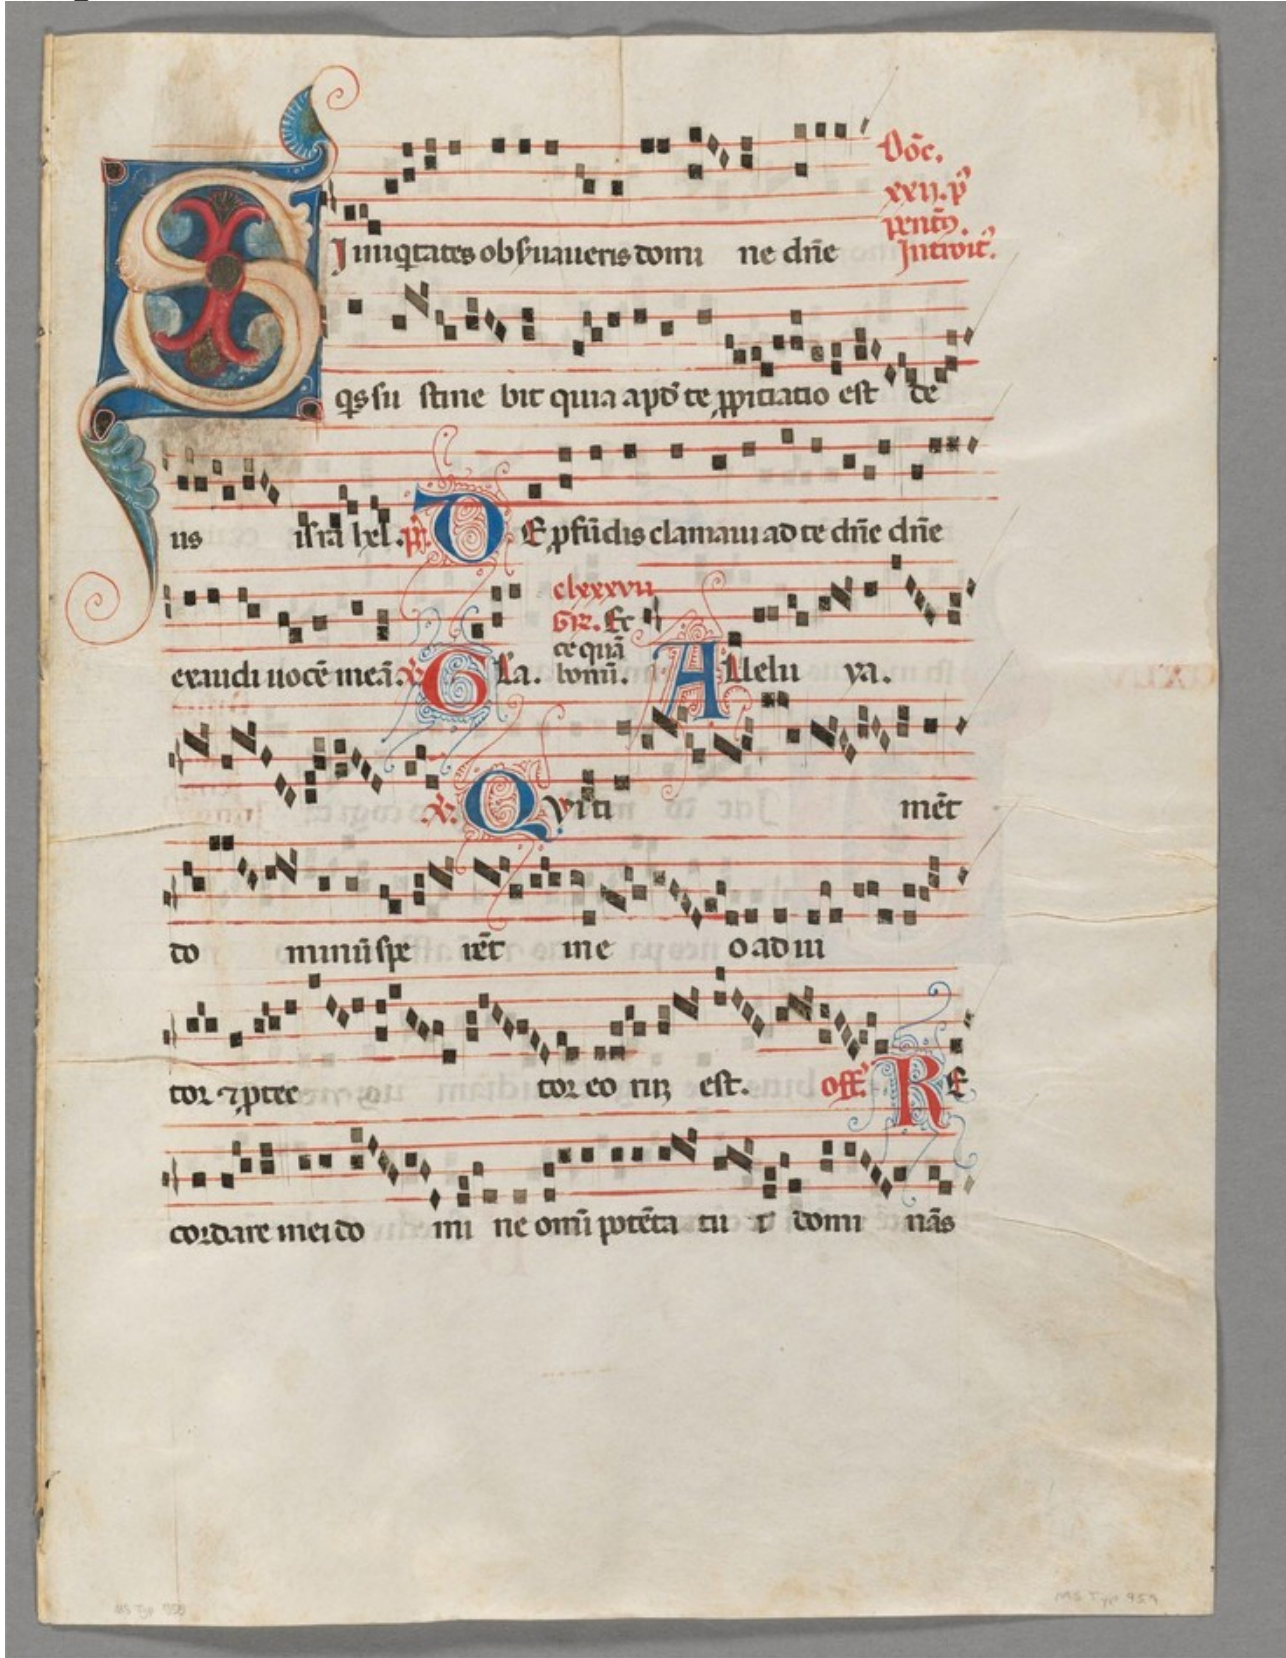 SI iniq̃tates obs̃uaueris domi ne dñe
Dõc.
xxij. p̃
pentc̃.
Introit̃.
q̃s su stine bit quia apd̃ te ꝓpitiatio est de
us isrã hel. p̃s. DE ꝓfũdis clamaui ad te dñe dñe
exaudi uocẽ meã. ℣. GLa.
clxxxvii
GR. Ec
ce quã
bonũ.
ALlelu ya.
℣. QVi ti mẽt
do minũ spe rẽt in e o ad iu
tor ⁊ ꝓtec tor eo rũ est. off̃. RE
cordare mei do mi ne om̃i potẽta tu i domi nãs
MS Typ 959
MS Typ 959